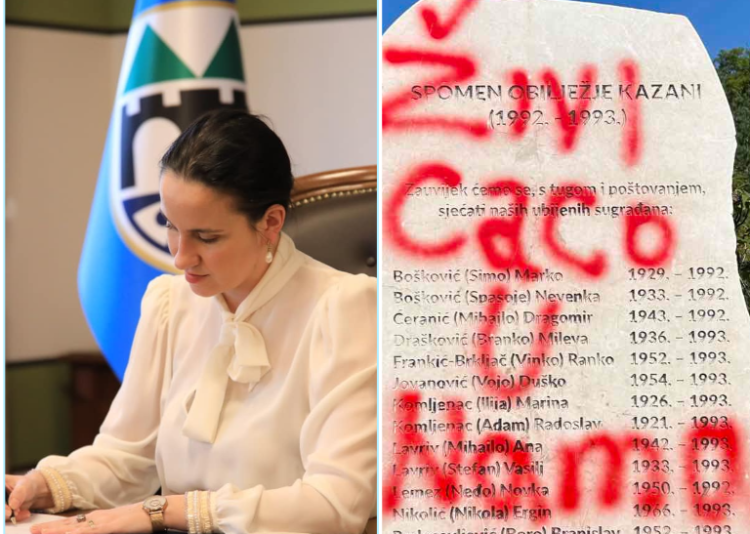 ŽIVI
Caco
U
SPOMEN OBILJEŽJE KAZANI
(1992. – 1993.)
Zauvijek ćemo se, s tugom i poštovanjem,
sjećati naših ubijenih sugrađana:
Bošković (Simo) Marko 1929. – 1992.
Bošković (Spasoje) Nevenka 1933. – 1992.
Ćeranić (Mihailo) Dragomir 1943. – 1992.
Drašković (Branko) Mileva 1936. – 1993.
Frankić-Brkljač (Vinko) Ranko 1952. – 1993.
Jovanović (Vojo) Duško 1954. – 1993.
Komljenac (Ilija) Marina 1926. – 1993.
Komljenac (Adam) Radoslav 1921. – 1993.
Lavriv (Mihailo) Ana 1942. – 1993.
Lavriv (Stefan) Vasilj 1933. – 1993.
Lemez (Neđo) Novka 1950. – 1992.
Nikolić (Nikola) Ergin 1966. – 1993.